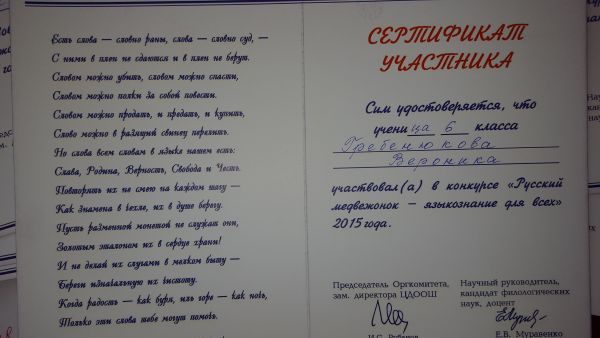 Есть слова — словно раны, слова — словно суд, —
С ними в плен не сдаются и в плен не берут.
Словом можно убить, словом можно спасти,
Словом можно полки за собой повести.
Словом можно продать, и предать, и купить,
Слово можно в разящий свинец перелить.
Но слова всем словам в языке нашем есть:
Слава, Родина, Верность, Свобода и Честь.
Повторять их не смею на каждом шагу —
Как знамена в чехле, их в душе берегу.
Пусть разменной монетой не служат они,
Золотым эталоном их в сердце храни!
И не делай их слугами в мелком быту —
Береги изначальную их чистоту.
Когда радость — как буря, иль горе — как ночь,
Только эти слова тебе могут помочь.
СЕРТИФИКАТ
УЧАСТНИКА
Сим удостоверяется, что
учени ца 6 класса
Гребенюкова
Вероника
участвовал(а) в конкурсе «Русский
медвежонок – языкознание для всех»
2015 года.
Председатель Оргкомитета,
зам. директора ЦДООШ
Научный руководитель,
кандидат филологических
наук, доцент
Е.В. Муравенко